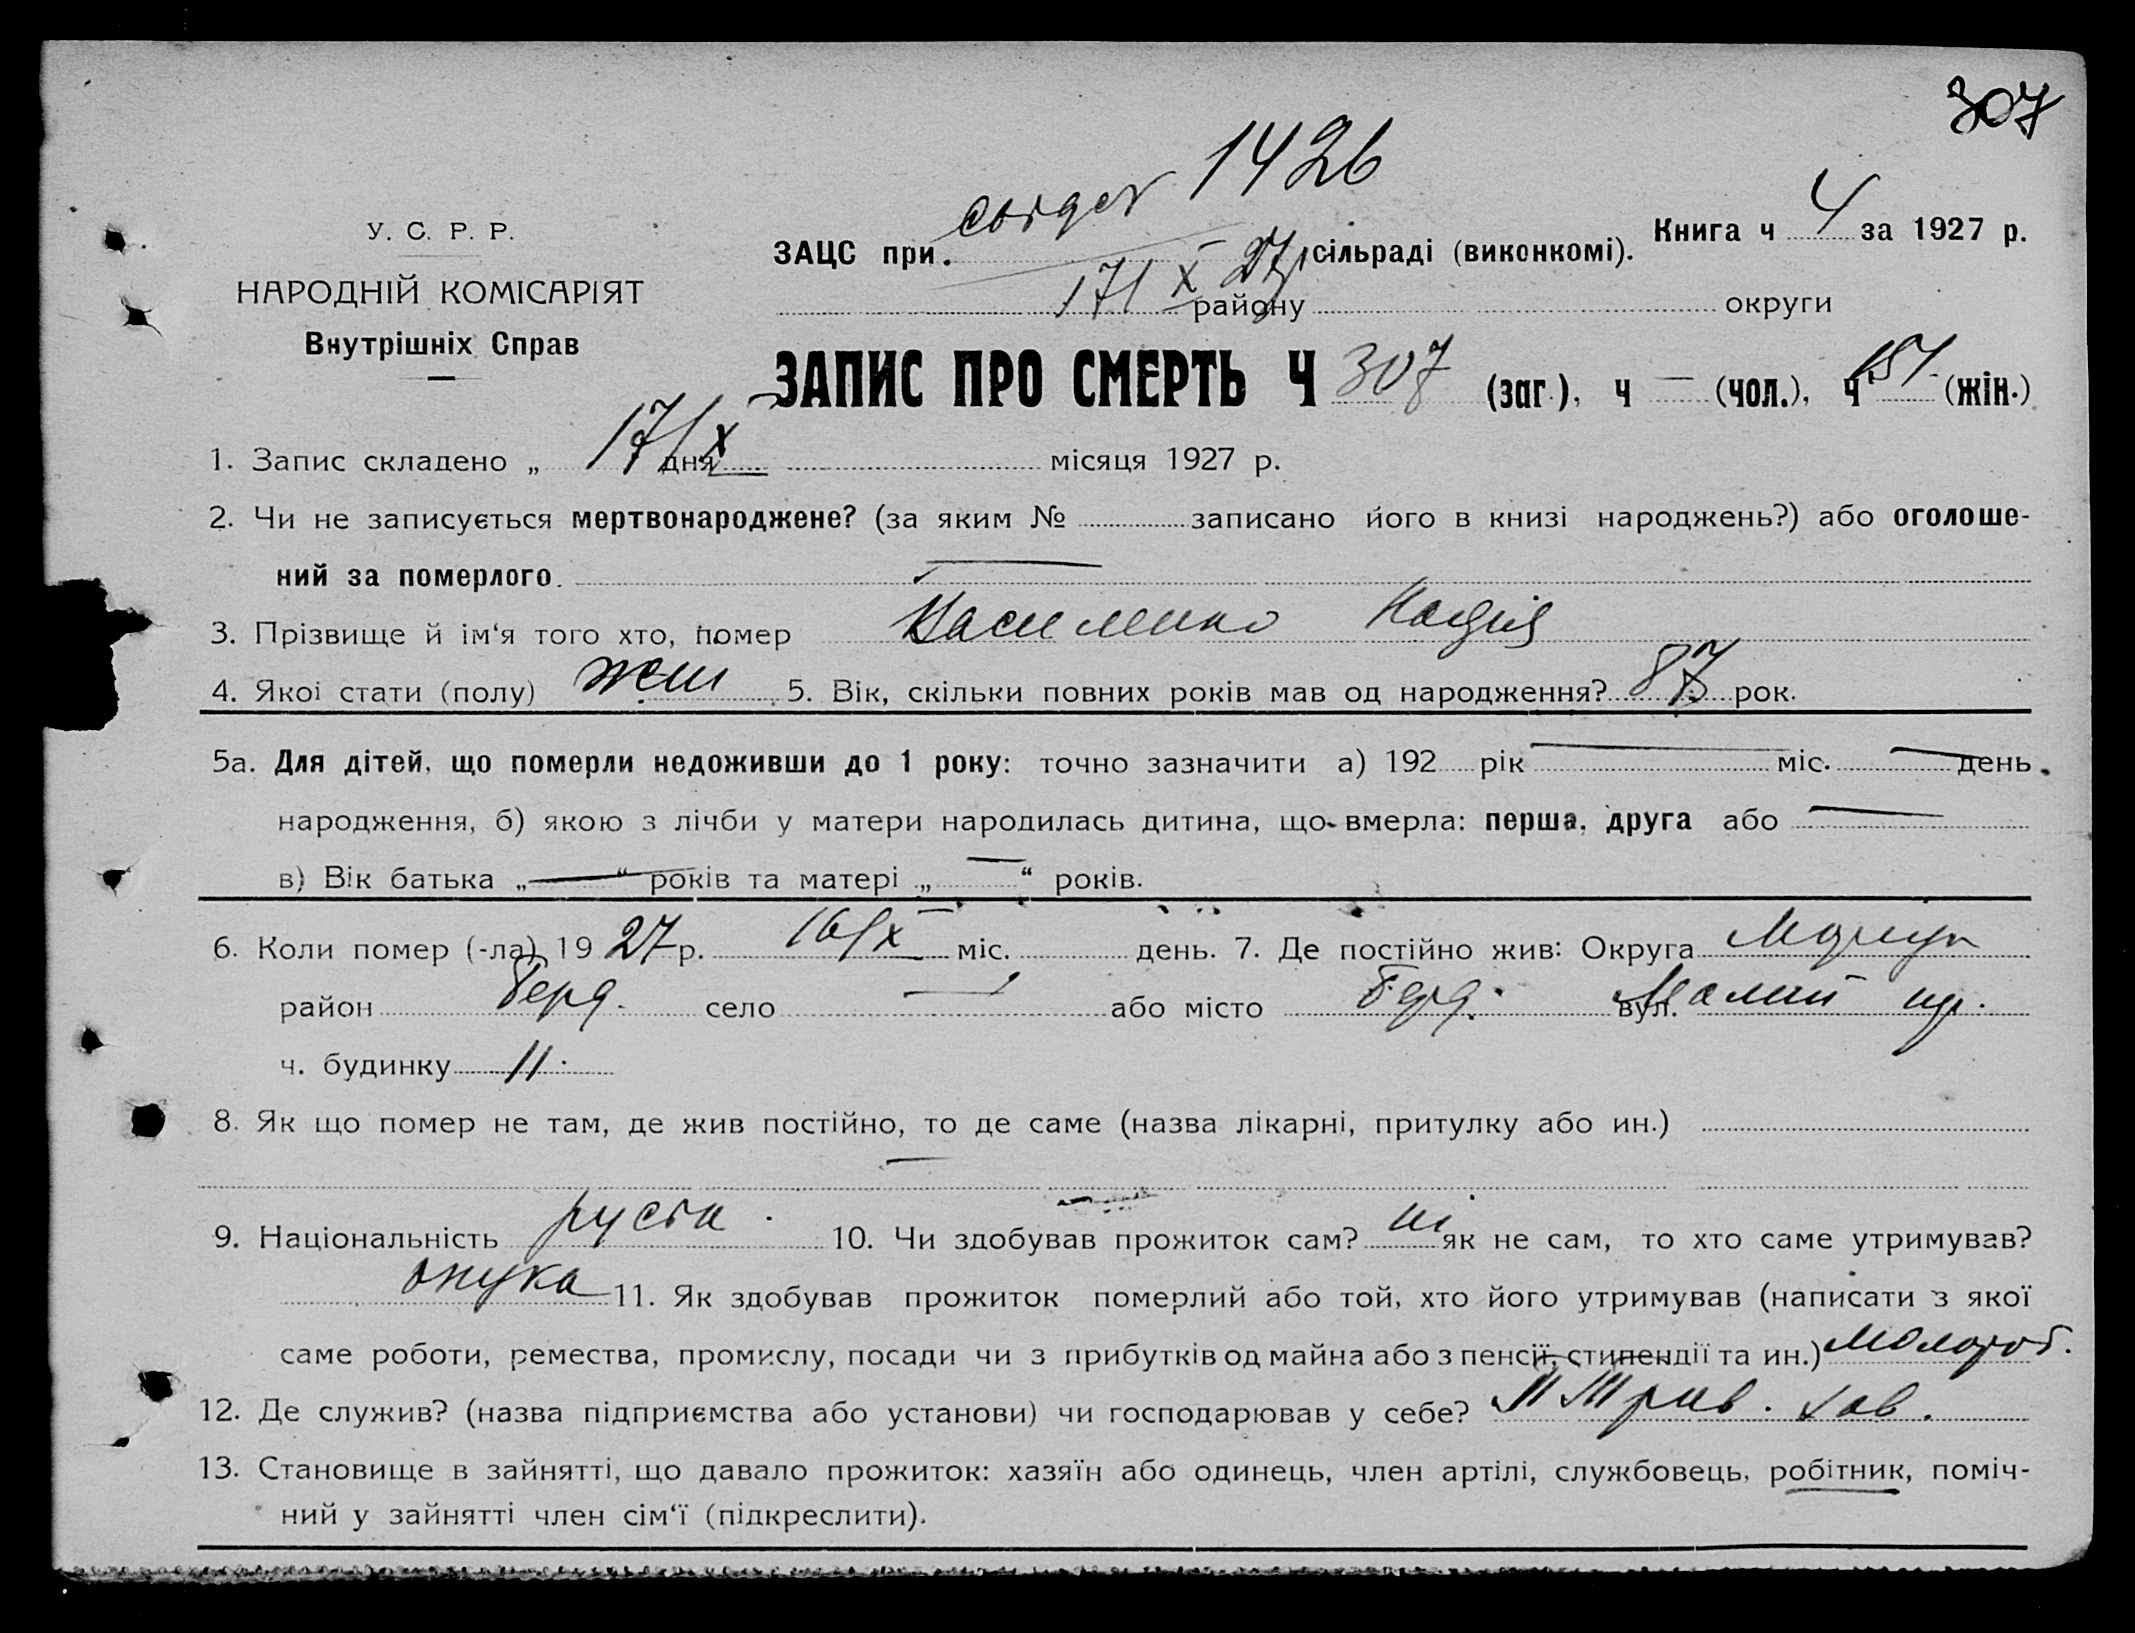 307
У. С. Р. Р.
НАРОДНІЙ КОМІСАРІЯТ
Внутрішніх Справ
1426
ЗАЦС при сільраді (виконкомі).
Книга ч 4 за 1927 р.
17/X 27 р
району округи
ЗАПИС ПРО СМЕРТЬ Ч 307 (заг.), ч — (чол.), ч 151 (жін.)
1. Запис складено „ 17/X дня місяця 1927 р.
2. Чи не записується мертвонароджене? (за яким № записано його в книзі народжень?) або оголоше-
ний за померлого. —
3. Прізвище й ім‘я того хто, помер Василенко Надія
4. Якої стати (полу) жін 5. Вік, скільки повних років мав од народження? 87 рок.
5а. Для дітей, що померли недоживши до 1 року: точно зазначити а) 192 рік — міс. — день
народження, б) якою з лічби у матери народилась дитина, що вмерла: перша, друга або —
в) Вік батька „ — “ років та матері „ — “ років.
6. Коли помер (-ла) 19 27 р. 16/X міс. день. 7. Де постійно жив: Округа Маріуп
район Берд. село — або місто Берд. вул. Малий пр.
ч. будинку 11.
8. Як що помер не там, де жив постійно, то де саме (назва лікарні, притулку або ин.)
—
9. Національність руська. 10. Чи здобував прожиток сам? ні як не сам, то хто саме утримував?
онука 11. Як здобував прожиток померлий або той, хто його утримував (написати з якої
саме роботи, ремества, промислу, посади чи з прибутків од майна або з пенсії, стипендії та ин.)
12. Де служив? (назва підприємства або установи) чи господарював у себе? зав.
13. Становище в зайнятті, що давало прожиток: хазяїн або одинець, член артілі, службовець, робітник, поміч-
ний у зайнятті член сім‘ї (підкреслити).